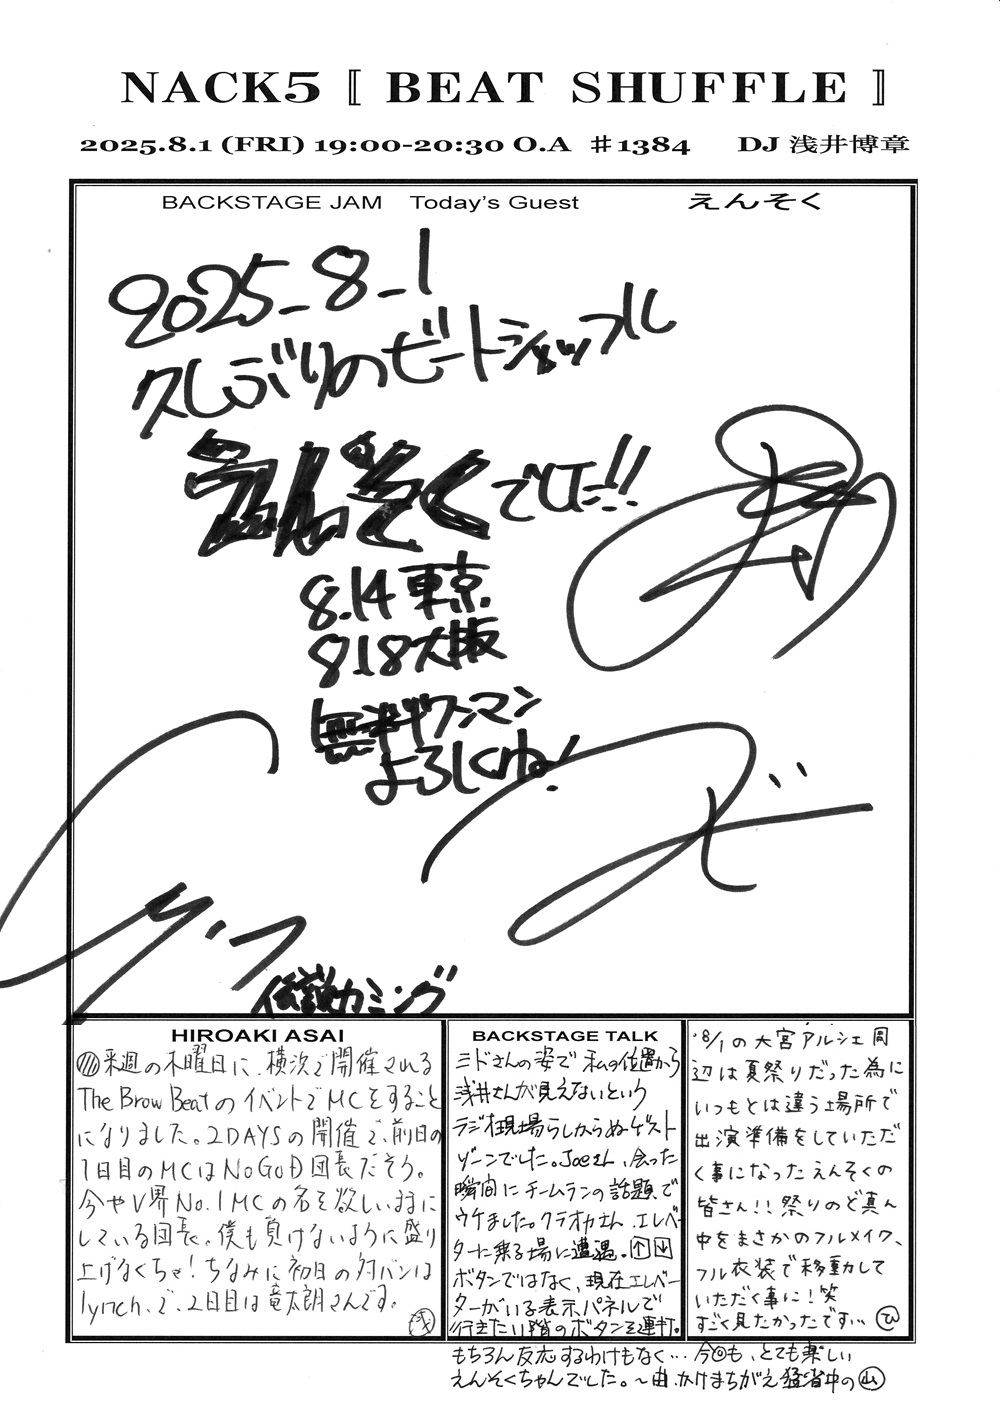 NACK5〚 BEAT SHUFFLE 〛
2025.8.1 (FRI) 19:00-20:30 O.A ＃1384 DJ 浅井博章
BACKSTAGE JAM Today's Guest えんそく
2025_8_1
久しぶりのビートシャッフル
えんそくでした!!
8.14 東京
8.18 大阪
無料ワンマン
よろしくね!
伝説カミング
HIROAKI ASAI
来週の木曜日に、横浜で開催される
The Brow Beatのイベントで MCをすること
になりました。2DAYSの開催で、前日の
1日目のMCはNoGoD団長だそう。
今やV界No.1MCの名を欲しいままに
している団長。僕も負けないように盛り
上げなくちゃ!ちなみに初日の対バンは
lynch.で、2日目は竜太朗さんです。
浅
BACKSTAGE TALK
ミドさんの姿で私の位置から
浅井さんが見えないという
ラジオ現場らしからぬゲスト
ゾーンでした。Joeさん、会った
瞬間にチームランの話題で
ウケました。クラオカさん、エレベ
ターに乗る場に遭遇。↑↓
ボタンではなく、現在エレベー
ターがいる表示パネルで
行きたい階のボタンを連打。
もちろん反応するわけもなく… 今回も、とても楽しい
えんそくちゃんでした。〜曲、かけまちがえ猛省中の山
・8/1の大宮アルシェ周
辺は夏祭りだった為に
いつもとは違う場所で
出演準備をしていただ
く事になったえんそくの
皆さん!!祭りのど真ん
中をまさかのフルメイク、
フル衣装で移動して
いただく事に!笑
すごく見たかったです… ひ